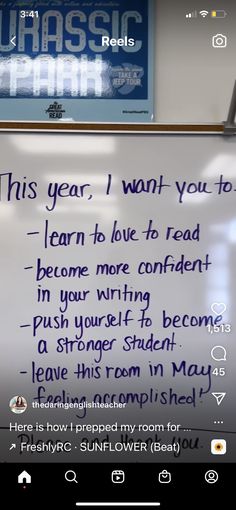 3:41
JURASSIC
PARK
Reels
TAKE A
JEEP TOUR
READ
This year, I want you to
- learn to love to read
- become more confident
in your writing
- push yourself to become
a stronger student.
- leave this room in May
feeling accomplished!
1,513
45
thedaringenglishteacher
Here is how I prepped my room for ...
↗ FreshlyRC · SUNFLOWER (Beat)
Please and thank you.